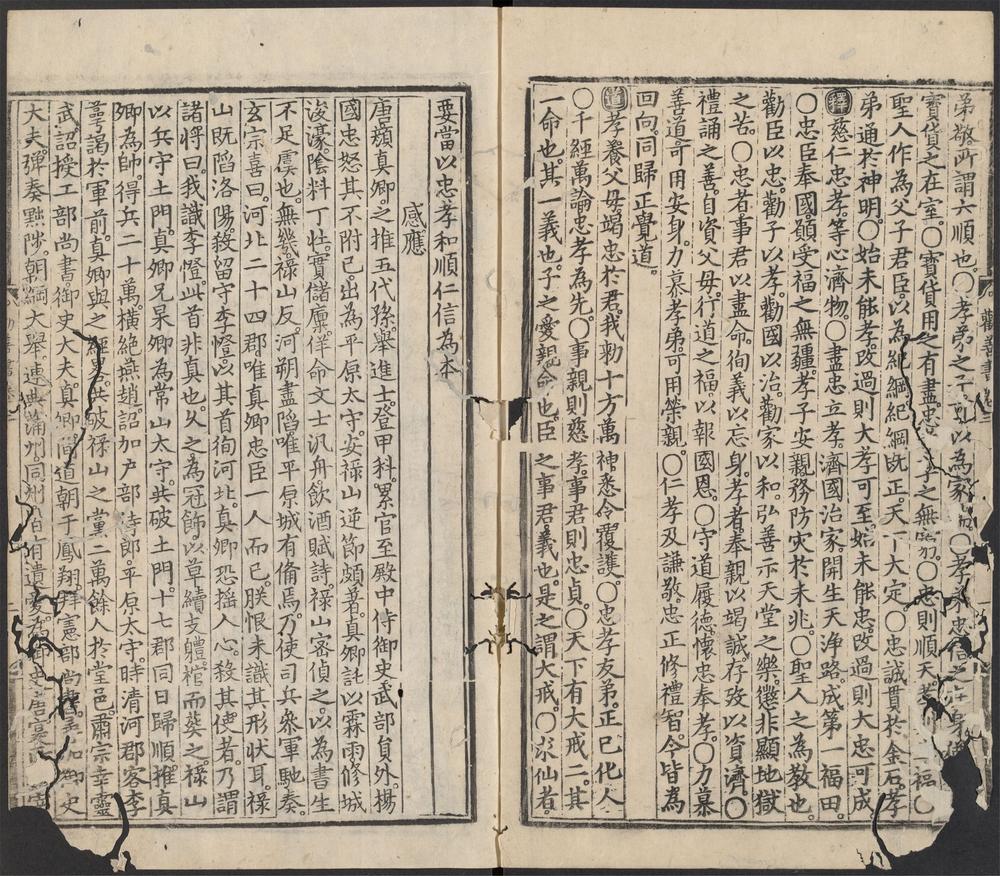 弟敬。所謂六順也。○孝弟之子以為家○孝忠信之在身
寶貨之在室。○寶貨用之有盡。忠孝之無窮○忠則順天。孝福○
聖人作為父子君臣。以為綱紀。綱紀既正。天下大定○忠誠貫於金石。孝
弟通於神明。○始未能孝。改過則大孝可至。始未能忠。改過則大忠可成
釋慈仁忠孝。等心濟物。○盡忠立孝。濟國治家。開生天淨路。成第一福田。
○忠臣奉國。願受福之無疆。孝子安親。務防灾於未兆。○聖人之為教也。
勸臣以忠。勸子以孝。勸國以治。勸家以和。弘善示天堂之樂。懲非顯地獄
之苦。○忠者事君以盡命。徇義以忘身。孝者奉親以竭誠。存歿以資濟。○
禮誦之善。自資父母。行道之福。以報國恩。○守道履德。懷忠奉孝。○力慕
善道。可用安身。力慕孝弟。可用榮親。○仁孝及謙敬。忠正修禮智。今皆為
回向。同歸正覺道。
道孝養父母。竭忠於君。我勑十方萬神。悉令覆護。○忠孝友弟。正己化人
○千經萬論。忠孝為先。○事親則慈孝。事君則忠貞。○天下有大戒二。其
一命也。其一義也。子之愛親。命也。臣之事君。義也。是之謂大戒。○求仙者。
要當以忠孝和順仁信為本
感應
唐顏真卿。之推五代孫。舉進士。登甲科。累官至殿中侍御史武部員外。楊
國忠怒其不附己。出為平原太守。安祿山逆節頗著。真卿託以霖雨。修城
浚濠。陰料丁壯。實儲廩。佯命文士汎舟。飲酒賦詩。祿山客偵之。以為書生
不足虞也。無幾。祿山反。河朔盡陷。唯平原城有備焉。乃使司兵參軍馳奏。
玄宗喜曰。河北二十四郡。唯真卿忠臣一人而已。朕恨未識其形狀耳。祿
山既陷洛陽。殺留守李憕。以其首徇河北。真卿恐搖人心。殺其使者。乃謂
諸將曰。我識李憕。此首非真也。久之為冠飾。以草續支體。棺而葬之。祿山
以兵守土門。真卿兄杲卿為常山太守。共破土門。十七郡同日歸順。推真
卿為帥。得兵二十萬。橫絕燕趙。詔加戶部侍郎。平原太守。時清河郡客李
萼謁於軍前。真卿與之經畧。共破祿山之黨二萬餘人於堂邑。肅宗幸靈
武。詔授工部尚書。御史大夫。真卿間道朝于鳳翔。拜憲部尚書。加御史
大夫。彈奏黜陟。朝綱大舉。連典蒲州。同州。皆有遺愛。為御史唐旻